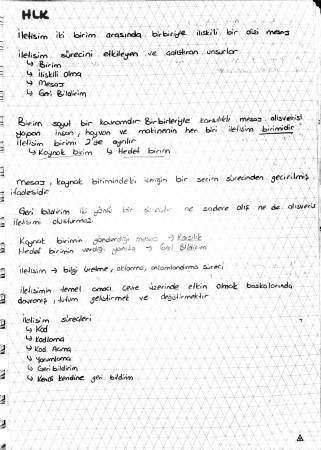 HLK
iletisim iki birim arasında birbiriyle iliskili bir dizi mesaj
iletisim sürecini etkileyen ve calıstıran unsurlar
↳ Birim
↳ iliskili olma
↳ Mesaj
↳ Geri Bildirim
Birim soyut bir kavramdır Birbirleriyle karsılıklı mesaj alısverisi
yapan insan, hayvan ve makinenin her biri iletisim birimidir
iletisim birimi 2'de ayrılır
↳ Kaynak birim ↳ Hedef birim
mesaj, kaynak birimindeki icerigin bir secim sürecinden gecirilmis
ifadesidir
Geri bildirim iki yönlü bir sürectir ne sadece alıs ne de alısveris
iletisimi olusturmaz
Kaynak birimin gönderdigi mesaj → Karsılık
Hedef birimin verdigi yanıta → Geri Bildirim
iletisim → bilgi üretme, aktarma, anlamlandırma süreci
iletisimin temel amacı cevre üzerinde etkin olmak baskalarında
davranıs, tutum gelistirmek ve degistirmektir
iletisim sürecleri
↳ Kod
↳ Kodlama
↳ Kod Acma
↳ Yorumlama
↳ Geri bildirim
↳ Kendi kendine geri bildirim